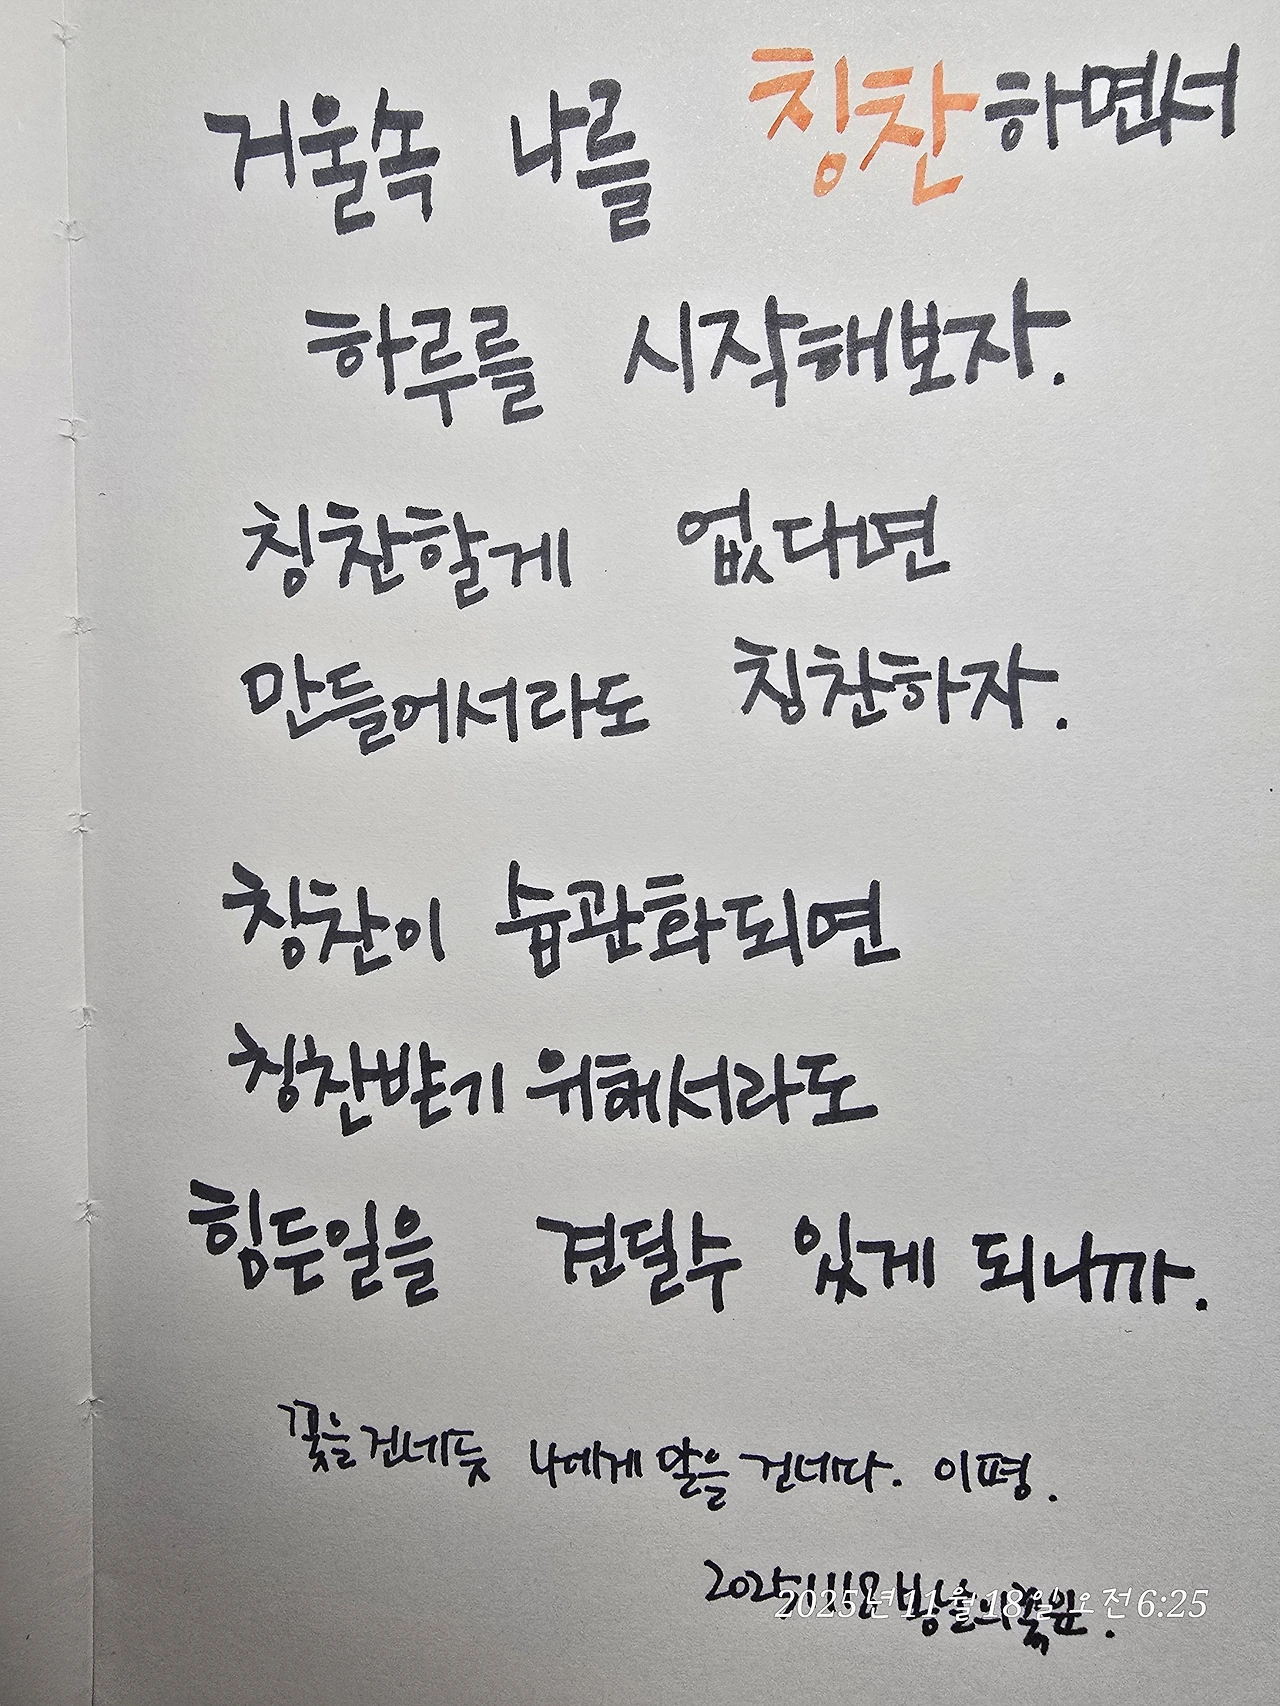 거울속 나를 칭찬하면서
하루를 시작해보자.
칭찬할게 없다면
만들어서라도 칭찬하자.
칭찬이 습관화되면
칭찬받기 위해서라도
힘든일을 견딜수 있게 되니까.
꽃을건네듯 나에게 말을 건네다. 이평.
20251118
2025년 11월 18일 오전 6:25